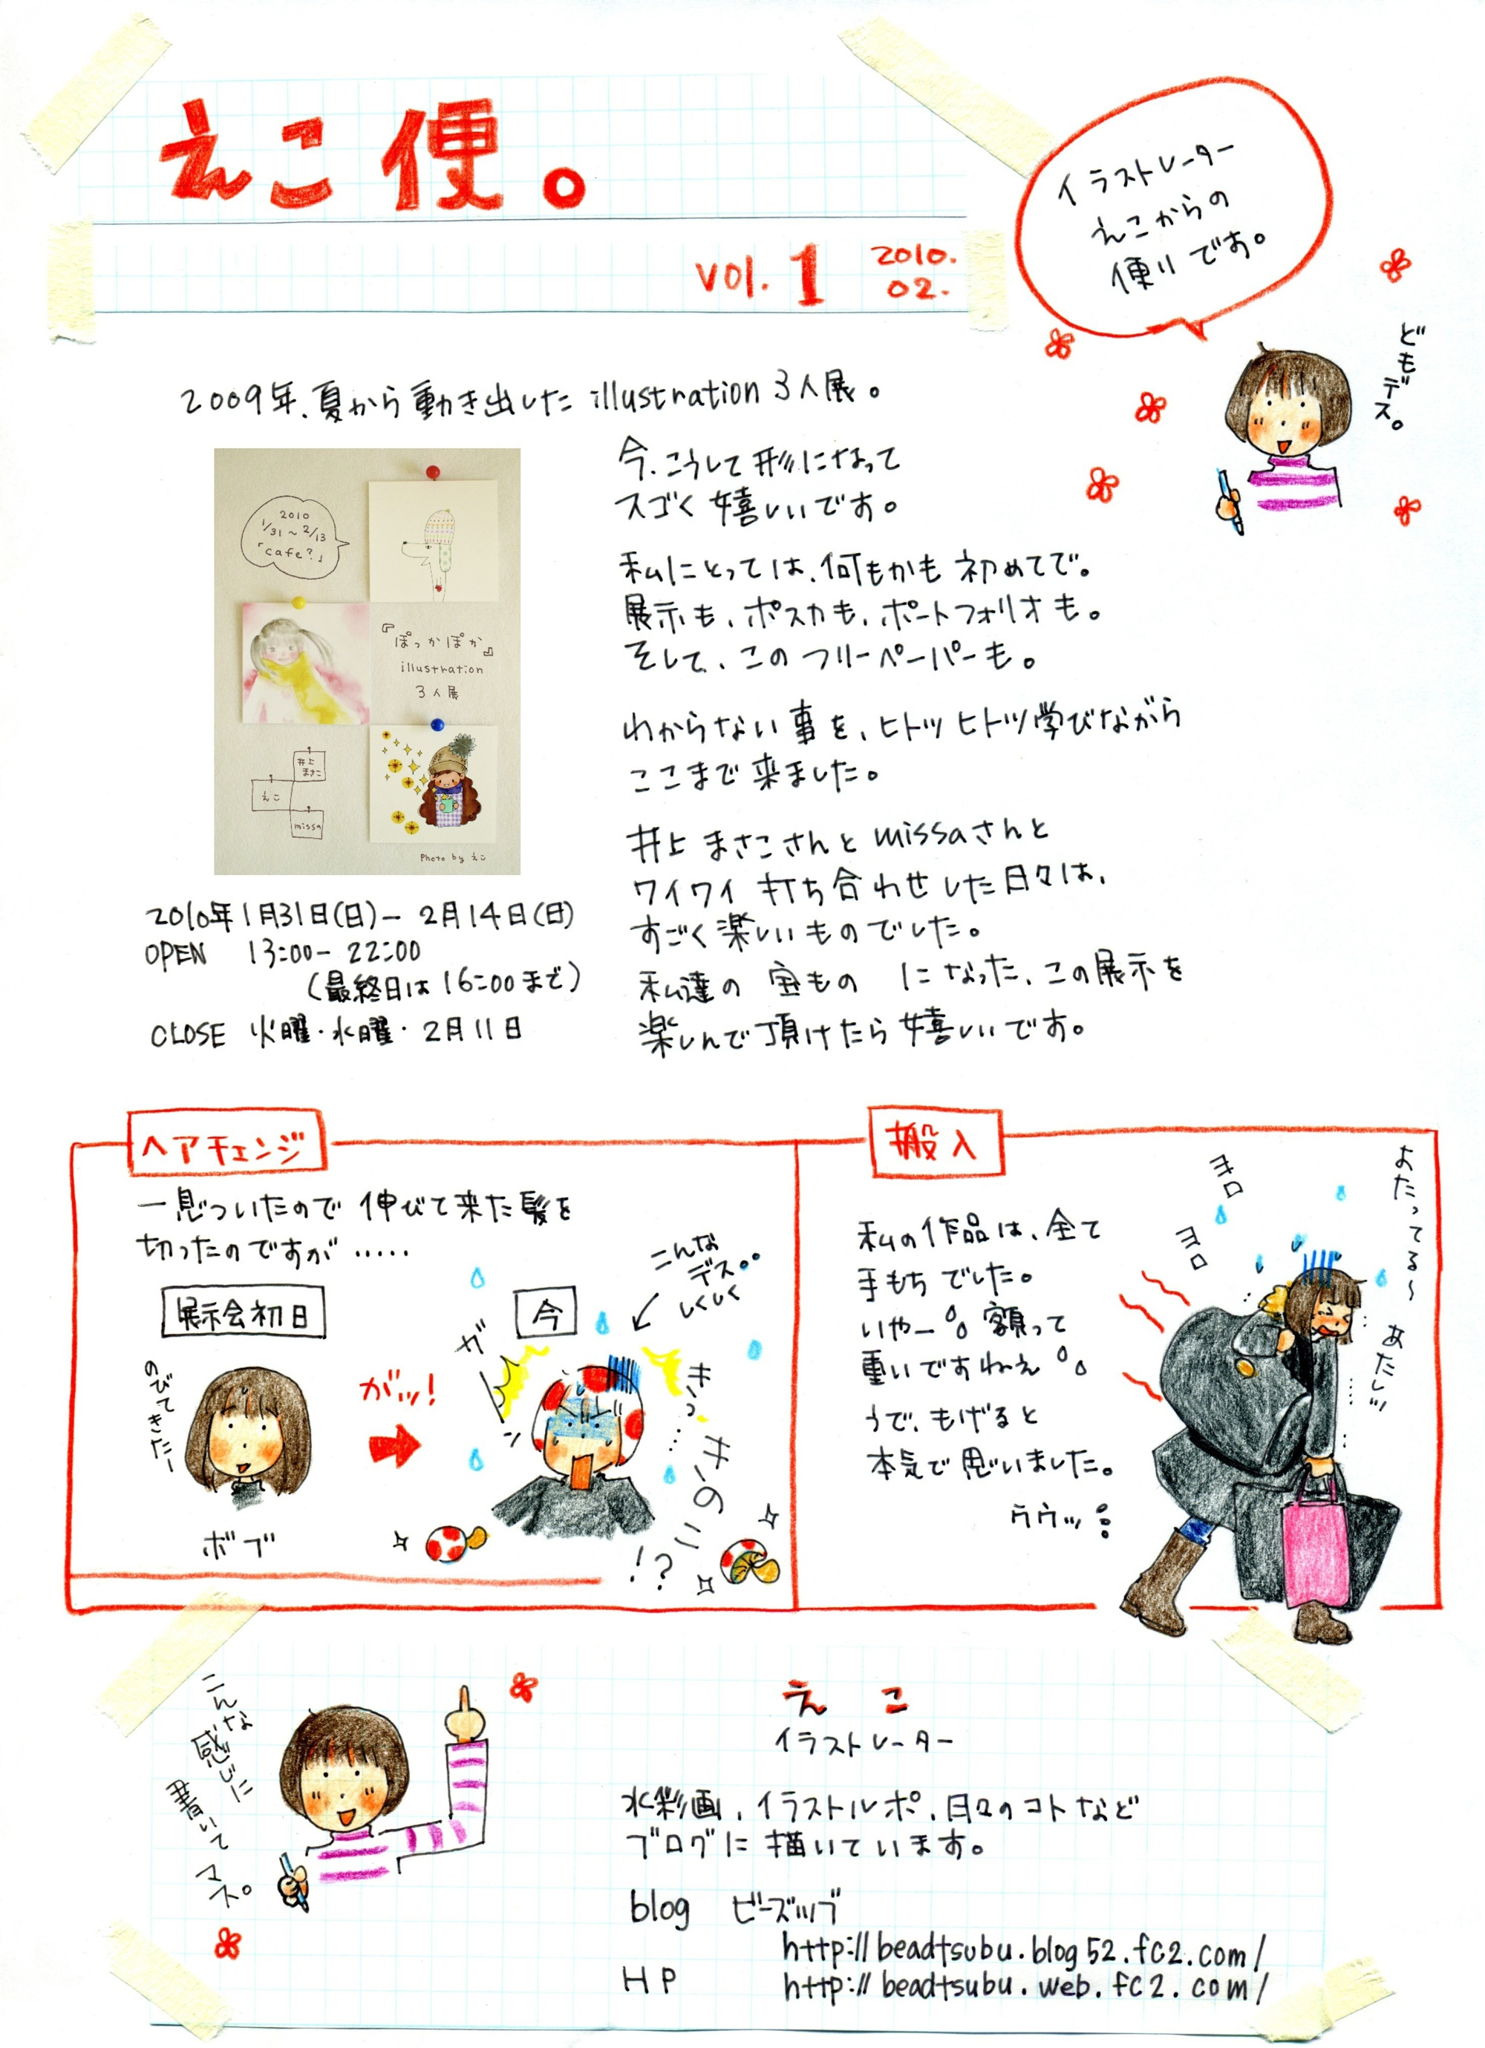 えこ便。
vol. 1 2010.
02.
イラストレーター
えこからの
便りです。
どもデス。
2009年、夏から動き出した illustration 3人展。
2010
1/31～2/13
「cafe?」
『ぽっかぽか』
illustration
3人展
井上
まさこ
えこ
missa
Photo by えこ
今、こうして形になって
スゴく嬉しいです。
私にとっては、何もかも初めてで。
展示も、ポスカも、ポートフォリオも。
そして、このフリーペーパーも。
わからない事を、ヒトツヒトツ学びながら
ここまで来ました。
井上まさこさんとmissaさんと
ワイワイ打ち合わせした日々は、
すごく楽しいものでした。
私達の宝ものになった、この展示を
楽しんで頂けたら嬉しいです。
2010年1月31日(日)－2月14日(日)
OPEN 13:00－22:00
(最終日は16:00まで)
CLOSE 火曜・水曜・2月11日
ヘアチェンジ
一息ついたので伸びて来た髪を
切ったのですが……
展示会初日
のびてきたー
ボブ
がッ!
今
こんな
デス。。
しくしく
ガーン
きっ……
きのこ!?
搬入
私の作品は、全て
手もちでした。
いやー。額って
重いですねえ。
うで、もげると
本気で思いました。
ウウッ…
ヨロ
ヨロ
あたってる～
あたしッ……
こんな
感じに
書いて
マス。
えこ
イラストレーター
水彩画、イラストルポ、日々のコトなど
ブログに描いています。
blog ビーズツブ
http://beadtsubu.blog52.fc2.com/
HP http://beadtsubu.web.fc2.com/